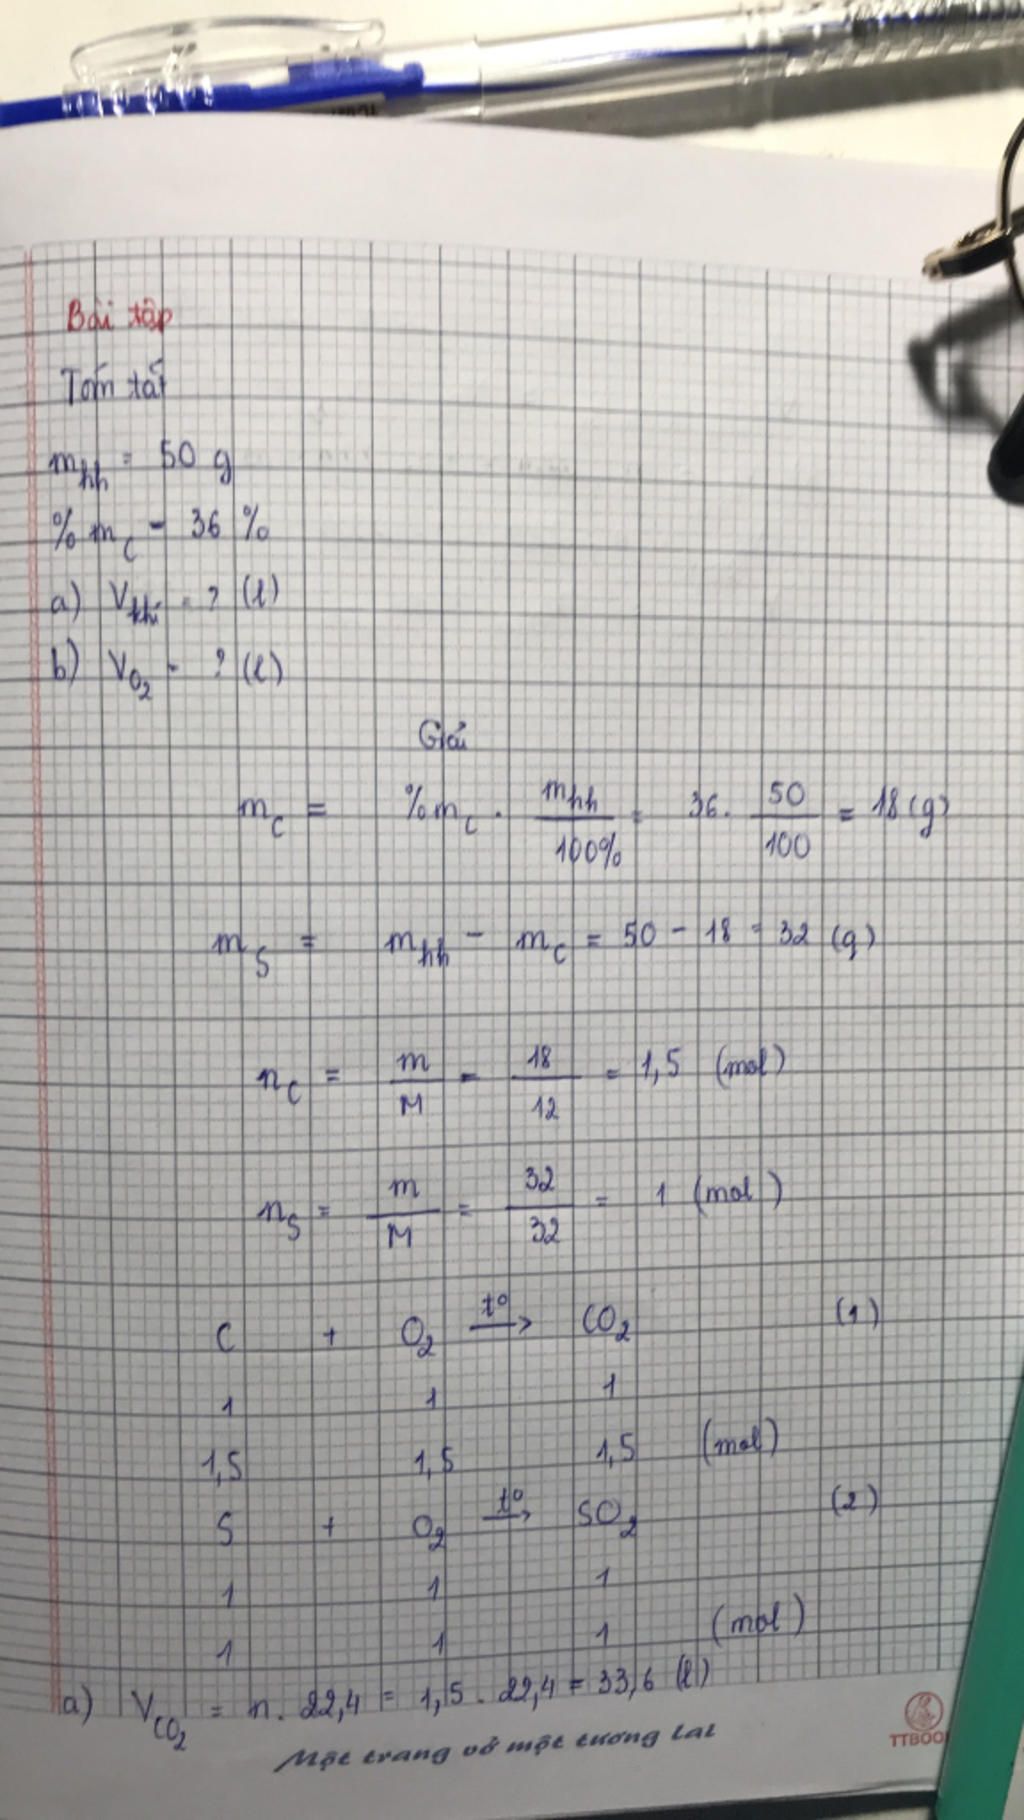 Bài tập
Tóm tắt
mhh = 50 g
% mC = 36 %
a) Vkhí = ? (l)
b) VO2 = ? (l)
Giải
mC = %mC . mhh/100% = 36. 50/100 = 18 (g)
mS = mhh - mC = 50 - 18 = 32 (g)
nC = m/M = 18/12 = 1,5 (mol)
nS = m/M = 32/32 = 1 (mol)
C + O2 t° → CO2 (1)
1 1 1
1,5 1,5 1,5 (mol)
S + O2 t° → SO2 (2)
1 1 1
1 1 1 (mol)
a) VCO2 = n. 22,4 = 1,5 . 22,4 = 33,6 (l)
Một trang vở một tương lai
TTBOO